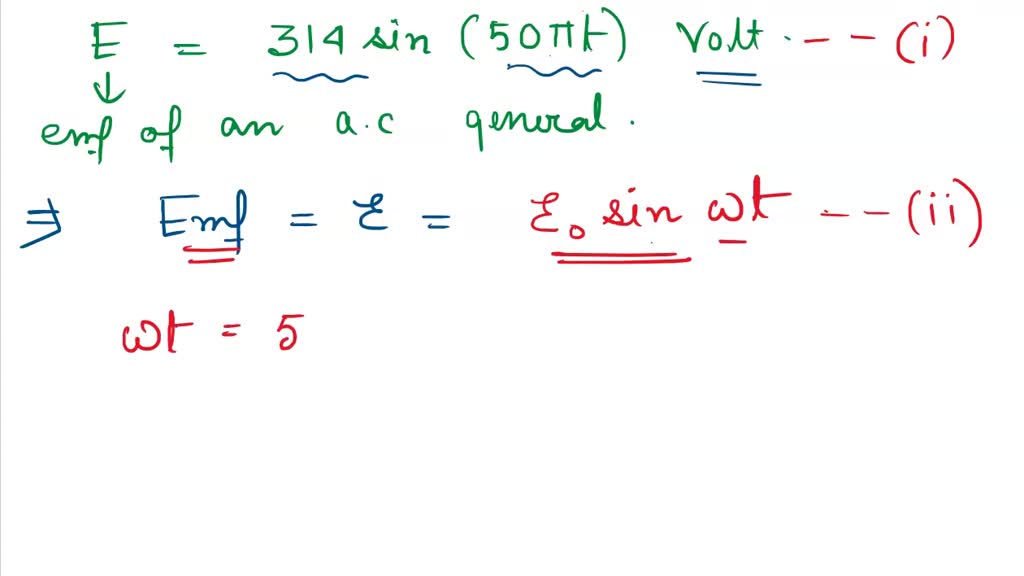 E = 314 sin (50πt) Volt. --- (i)
↓
emf of an a.c general.
⇒ Emf = ε = ε₀ sin ωt --- (ii)
ωt = 5